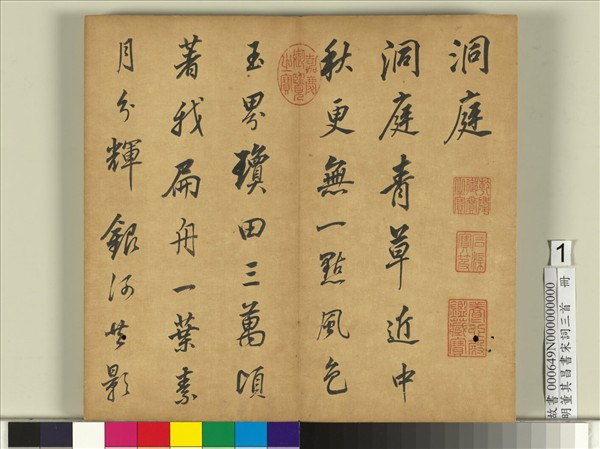 洞庭
洞庭青草近中
秋更無一點風色
玉界瓊田三萬頃
著我扁舟一葉素
月分輝銀河共影
嘉慶御覽之寶
1
故書000649N000000000
明董其昌書宋詞三首 冊